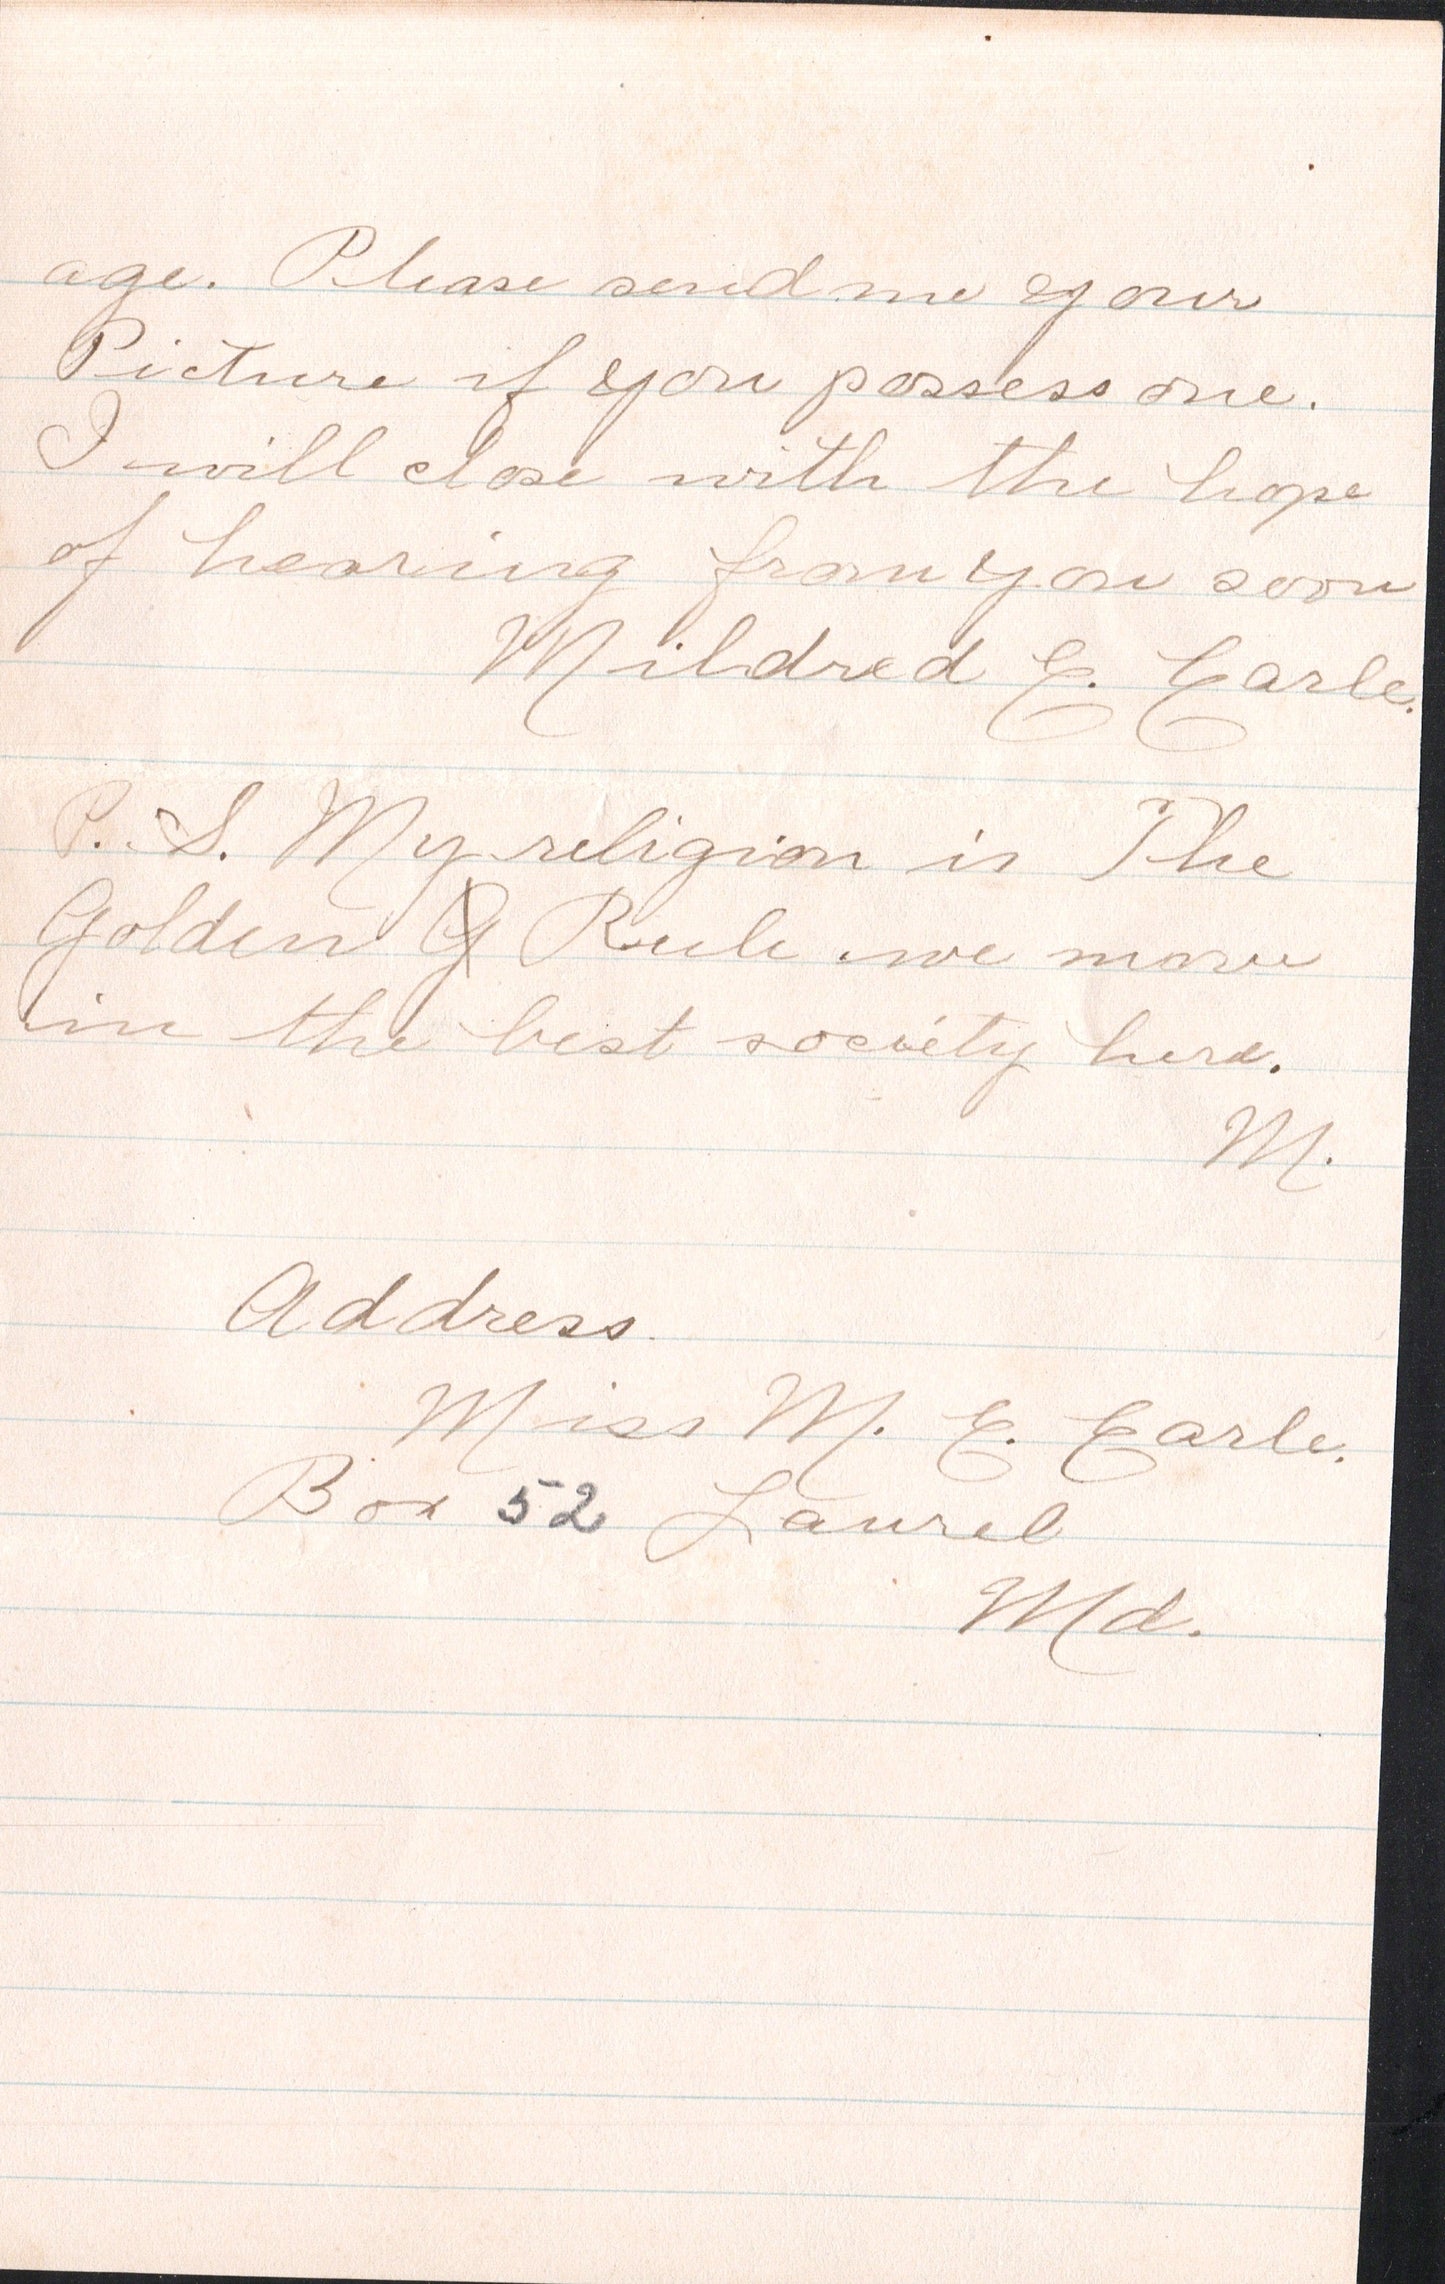 age. Please send me your
Picture if you possess one.
I will close with the hope
of hearing from you soon
Mildred E. Earle.
P. S. My religion is The
Golden G Rule we move
in the best society here.
M.
Address.
Miss M. E. Earle.
Box 52 Laurel
Md.